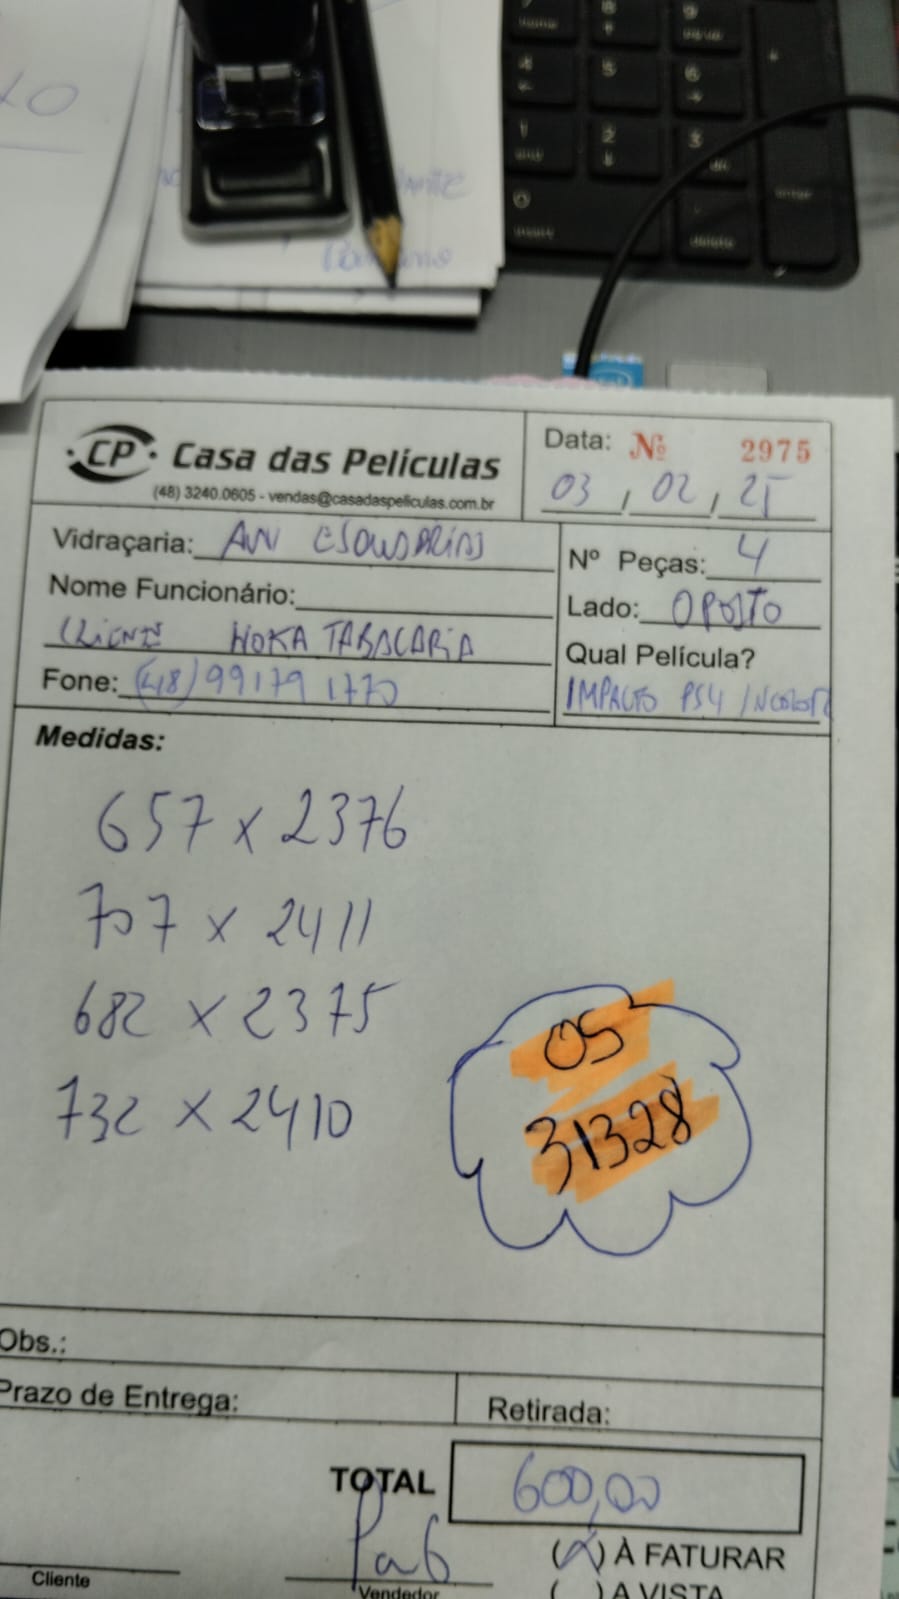 CP Casa das Películas
(48) 3240.0605 - vendas@casadaspeliculas.com.br
Data: Nº 2975
03, 02, 25
Vidraçaria: AVV ESQUADRIAS
Nº Peças: 4
Nome Funcionário:
Lado: OPOSTO
CLIENTE HOKA TABACARIA
Qual Película?
Fone: (48) 99179 1770
IMPACTO PS4 INCOLOR
Medidas:
657 x 2376
707 x 2411
682 x 2375
732 x 2410
OS
31328
Obs.:
Prazo de Entrega:
Retirada:
TOTAL 600,00
Cliente
Vendedor
(X) À FATURAR
( ) A VISTA